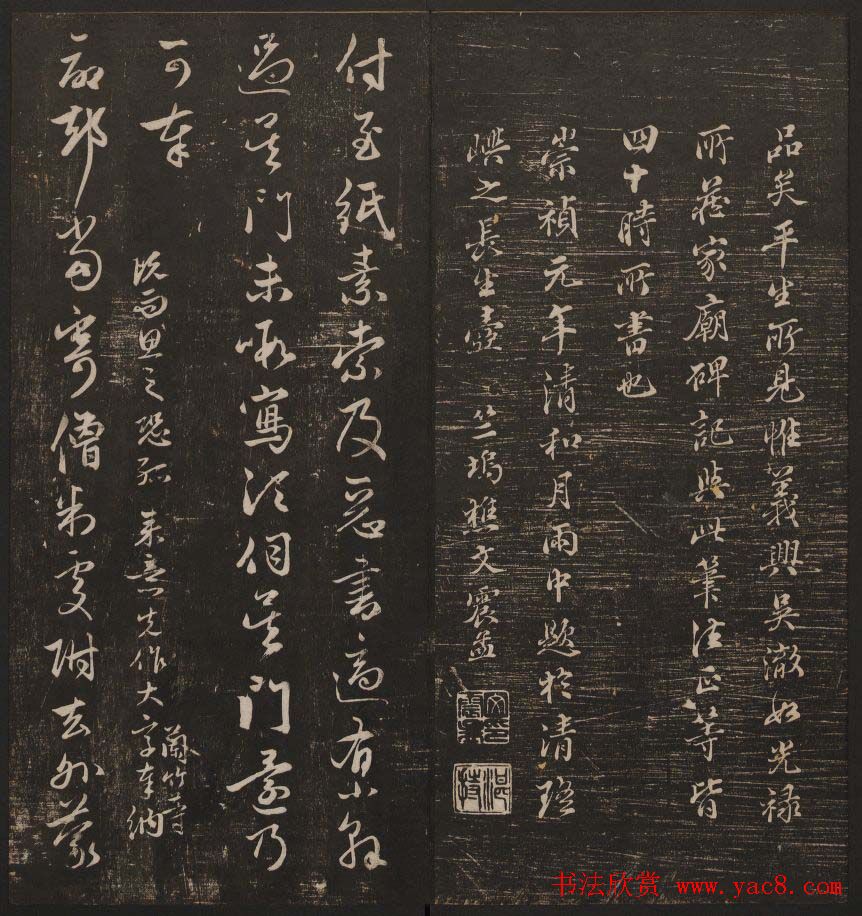 品矣平生所見惟義興吳澈如光祿
所藏家廟碑記與此筆法正等皆
四十時所書也
崇禎元年清和月雨中題於清瑤
嶼之長生壺 竺塢樵文震孟
湛持
付至紙素索及惡書適有小幹
過吳門未暇寫須伺吳門還乃
可奉
既而思之恐孤來意先作大字奉納
蘭竹等
當寄僧判處附去外蒙
书法欣赏 www.yac8.com